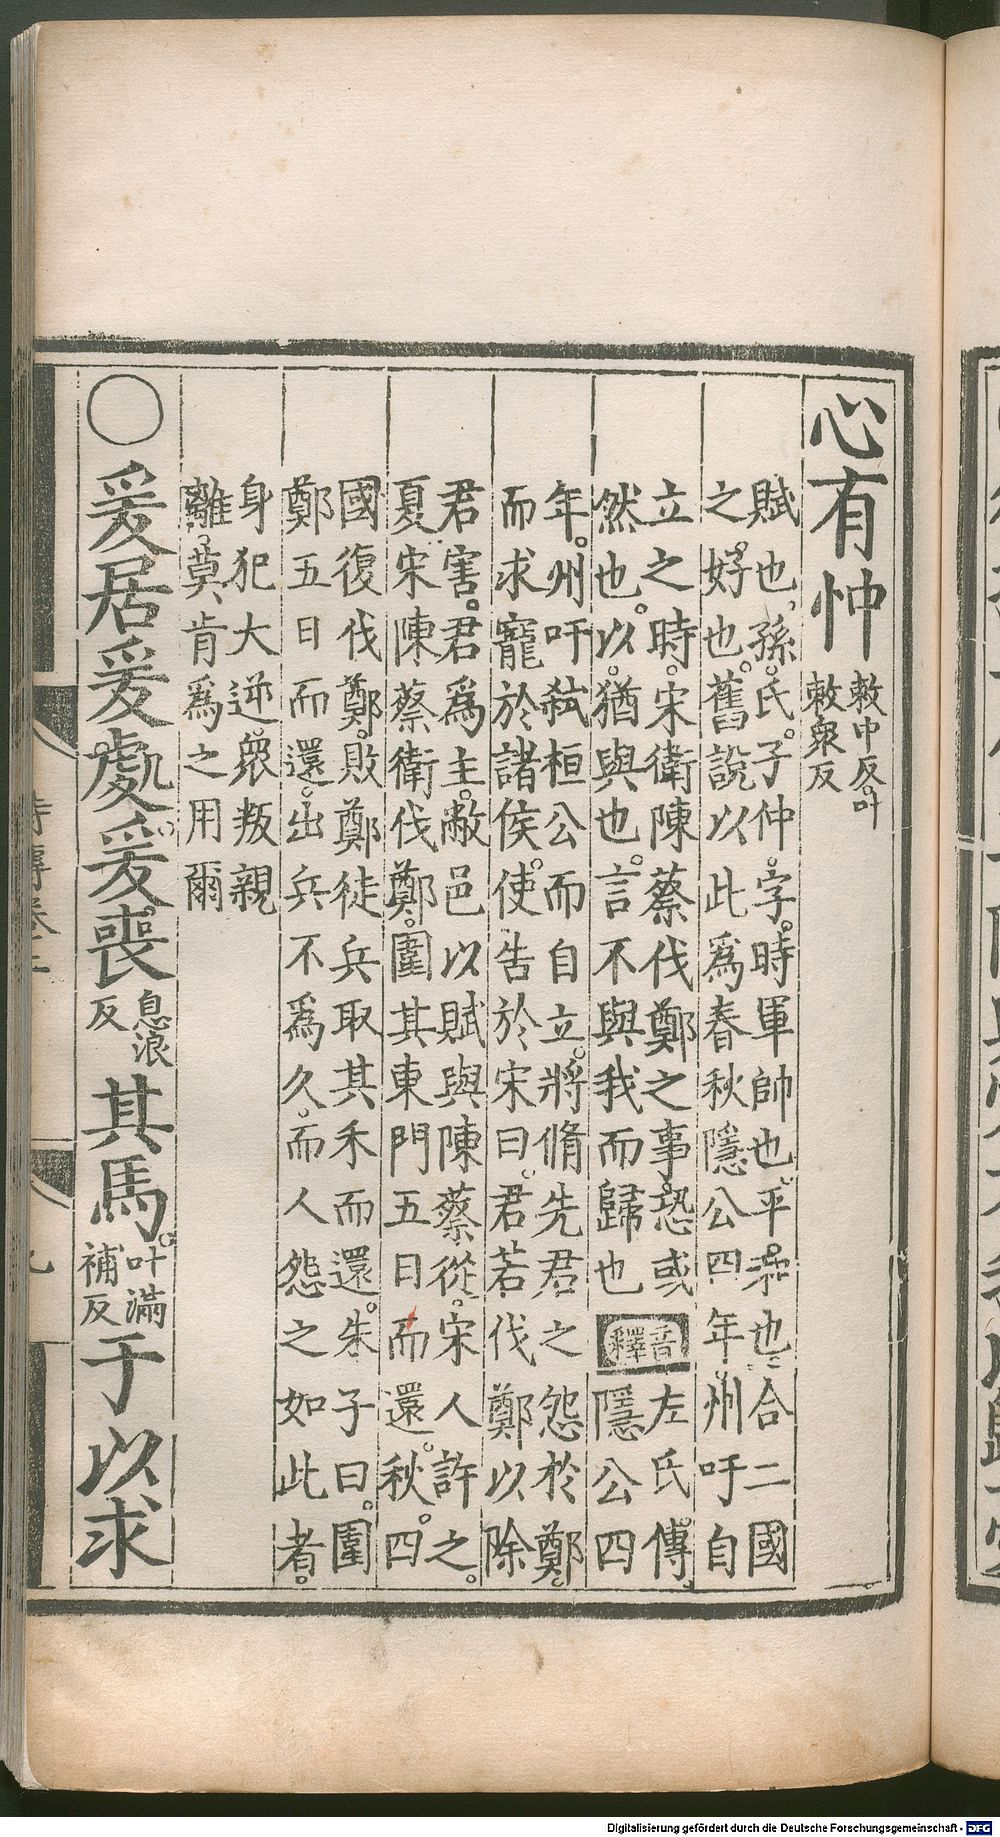 心有忡敕中反叶敕衆反
賦也孫氏子仲字時軍帥也平和也合二國
之好也舊說以此爲春秋隱公四年州吁自
立之時宋衛陳蔡伐鄭之事恐或
然也以猶與也言不與我而歸也
音釋
左氏傳
隱公四
年州吁弒桓公而自立將脩先君之怨於鄭
而求寵於諸侯使告於宋曰君若伐鄭以除
君害君爲主敝邑以賦與陳蔡從宋人許之
夏宋陳蔡衛伐鄭圍其東門五日而還秋四
國復伐鄭敗鄭徒兵取其禾而還朱子曰圍
鄭五日而還出兵不爲久而人怨之如此者
身犯大逆衆叛親
離莫肯爲之用爾
○爰居爰處爰喪息浪反其馬叶滿補反于以求
詩傳卷二
九
Digitalisierung gefördert durch die Deutsche Forschungsgemeinschaft - DFG